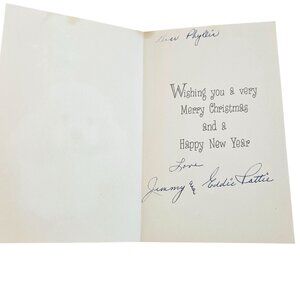 Dear Phyllis
Wishing you a very
Merry Christmas
and a
Happy New Year
Love
Jimmy & Eddie Pattie